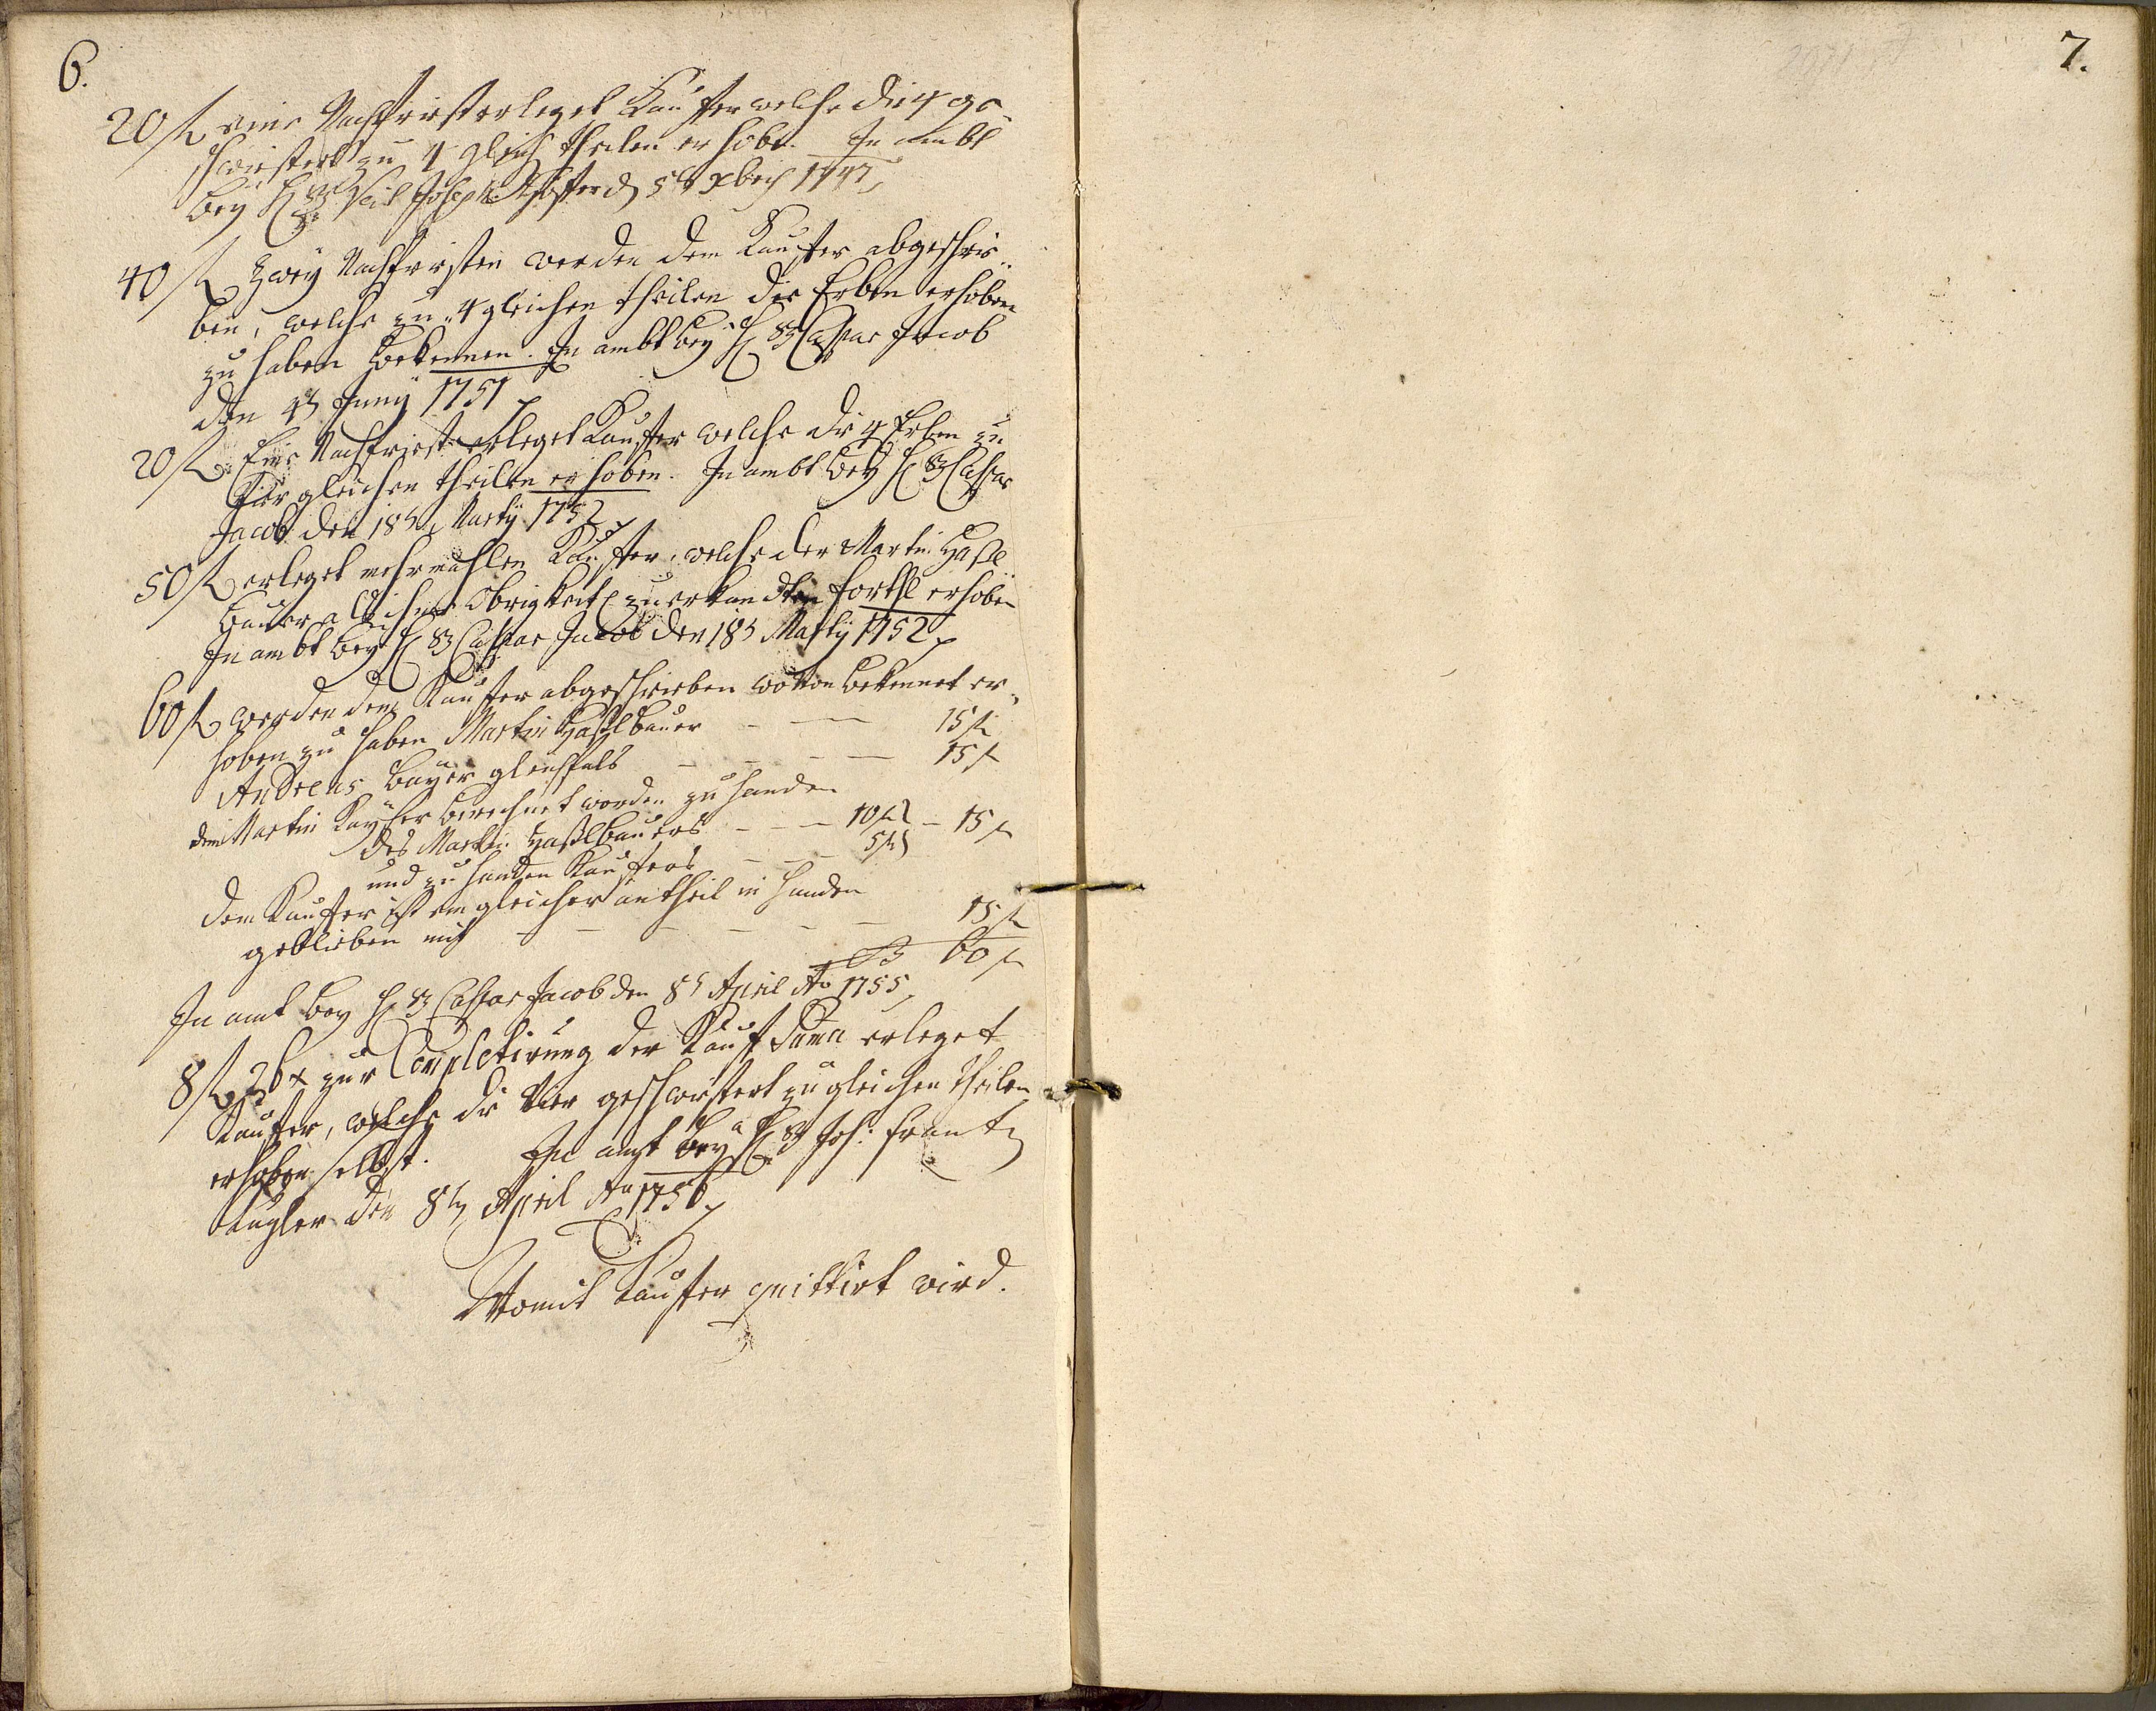 6.
20 f eine Nachfrist erleget Kauffer welche die 4 ge-
schwistert zu 4 gleich theilen erhobe. In ambt
bey H: Veit Joseph den 5t Xber 1747
40 f Zwey Nachfristen werden dem Kauffer abgeschrie-
ben, welche zu 4 gleichen theilen die Erben erhoben
zu haben bekennen. In ambt bey H: Caspar Jacob
den 4t Juny 1751
20 f Eine Nachfrist erleget Kauffer welche die 4 Erben zu
Vier gleichen theilen erhoben. In ambt bey H: Caspar
Jacob den 18t Martÿ 1752
50 f erleget mehrmahlen Kauffer, welche der Martin Haßl-
bauer Obrigkeitl zuerkandten forthl erhoben
In ambt bey H: Caspar Jacob den 18t Martÿ 1752
60 f werden dem Kauffer abgeschrieben wovon bekennet er-
hoben zu haben Martin Haßlbauer — — 15 f
Andreas Bayer gleichfals — — — — 15 f
dem Martin Kayser berechnet worden zu handen
des Martin Haßlbauers — — 10 f
und zu handen Kauffers — — — 5 f — 15 f
dem Kauffer ist ein gleicher antheil in handen
geblieben mit — — — — — — 15 f
60 f
In amt bey H: Caspar Jacob den 8t April Ao 1755
8 f 26 x zur Completirung der Kauff Suma erleget
Kauffer, welche die Vier geschwistert zu gleichen theilen
erhoben selbst. In amt bey H: Joh: Frantz
Kugler den 8t April Ao 1756
Womit Kauffer quittirt wird.
7.